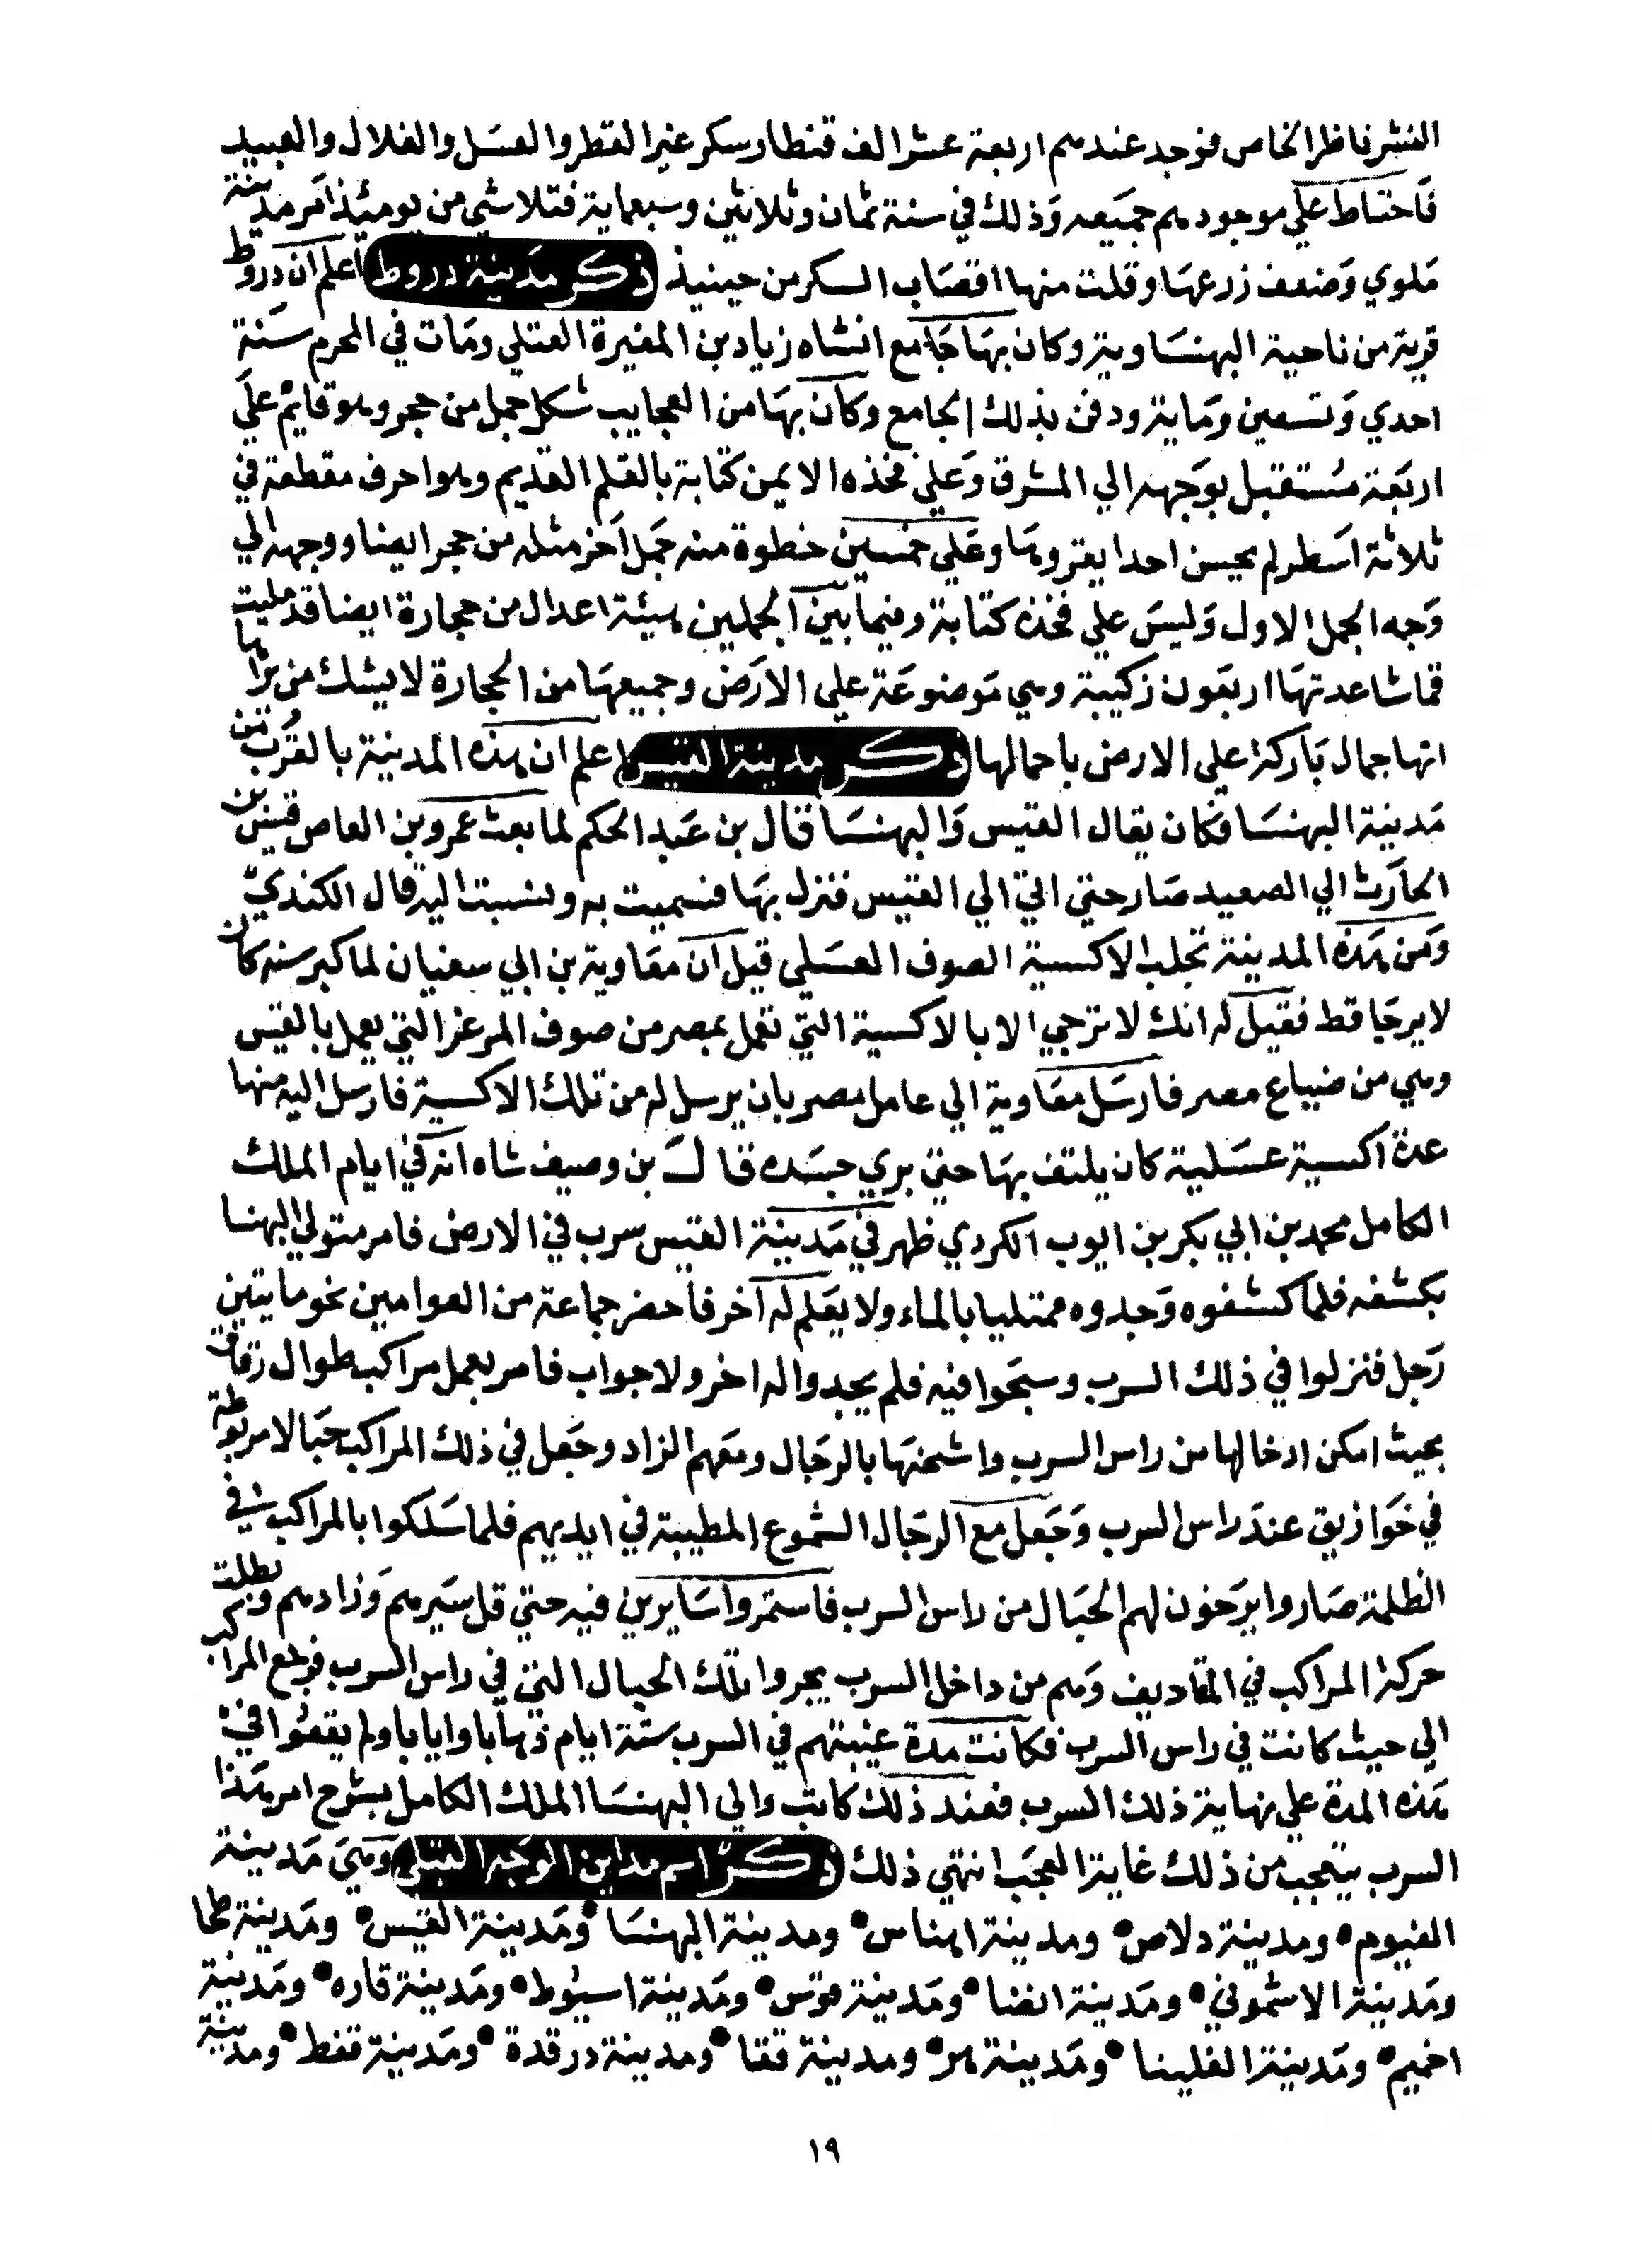 النشو ناظر الخاص فوجد عندهم اربعة عشر الف قنطار سكر غير القطر والعسل والغلال والعبيد
فاحتاط علي موجودهم جميعه وذلك في سنة ثمان وثلاثين وسبعماية فتلاشي من يوميئذ امر مدينة
ملوي وضعف زرعها وقلت منها اقصاب السكر من حينيذ ذكر مدينة دروط اعلم ان دروط
قرية من ناحية البهنساوية وكان بها جامع انشاه زياد بن المغيرة العتلي ومات في المحرم سنة
احدي وتسعين وماية ودفن بذلك الجامع وكان بها من العجايب شكل جمل من حجر وهو قايم علي
اربعة مستقبل بوجهه الي المشرق وعلي فخذه الايمن كتابة بالقلم القديم وهو احرف مقطعة في
ثلاثة اسطر لم يحسن احدا يقروها وعلي خمسين خطوة منه جمل اخر مثله من حجر ايضا ووجهه الي
وجه الجمل الاول وليس علي فخذه كتابة وفيما بين الجملين هيئة اعدال من حجارة ايضا قد مليت
قماشا عدتها اربعون زكيبة وهي موضوعة علي الارض وجميعها من الحجارة لا يشك من يراها
انها جمال باركة علي الارض باحمالها ذكر مدينة القيس اعلم ان هذه المدينة بالقرب من
مدينة البهنسا فكان يقال القيس والبهنسا قال بن عبد الحكم لما بعث عمرو بن العاص قيس بن
الحارث الي الصعيد صار حتي اتي الي القيس فنزل بها فسميت به ونسبت اليه قال الكندي
ومن هذه المدينة تجلب الاكسية الصوف العسلي قيل ان معاوية بن ابي سفيان لما كبر سنه كان
لا يرجا قط فقيل له انك لا ترجي الا بالاكسية التي تعمل بمصر من صوف المرعز التي يعمل بالقيس
وهي من ضياع مصر فارسل معاوية الي عامل مصر بان يرسل له من تلك الاكسية فارسل اليه منها
عدة اكسية عسلية كان يلتف بها حتي بري جسده قال بن وصيف شاه انه في ايام الملك
الكامل محمد بن ابي بكر بن ايوب الكردي ظهر في مدينة القيس سرب في الارض فامر متولي البهنسا
بكشفه فلما كشفوه وجدوه ممتليا بالماء ولا يعلم له اخر فاحضر جماعة من العوامين نحو مايتين
رجل فنزلوا في ذلك السرب وسبحوا فيه فلم يجدوا له اخر ولا جواب فامر بعمل مراكب طوال رقاق
بحيث امكن ادخالها من راس السرب واشحنها بالرجال ومعهم الزاد وجعل في ذلك المراكب حبالا مربوطة
في خوازيق عند راس السرب وجعل مع الرجال الشموع المطيبة في ايديهم فلما سلكوا بالمراكب في
الظلمة صاروا يرخون لهم الحبال من راس السرب فاستمروا سايرين فيه حتي قل سيرهم وزادهم وبطلت
حركة المراكب في المقاديف وهم من داخل السرب يجروا بتلك الحبال التي في راس السرب فرجع المراكب
الي حيث كانت في راس السرب فكانت مدة غيبتهم في السرب ستة ايام ذهابا وايابا ولم يقفوا في
هذه المدة علي نهاية ذلك السرب فعند ذلك كاتب والي البهنسا الملك الكامل بشرح امر هذا
السرب يتعجب من ذلك غاية العجب انتهي ذلك ذكر مداين الوجه القبلي وهي مدينة
الفيوم ومدينة دلاص ومدينة اهناس ومدينة البهنسا ومدينة القيس ومدينة طحا
ومدينة الاشموني ومدينة انضنا ومدينة قوص ومدينة اسيوط ومدينة قاره ومدينة
اخميم ومدينة الفلينا ومدينة هو ومدينة قفا ومدينة درقدة ومدينة قفط ومدينة
١٩